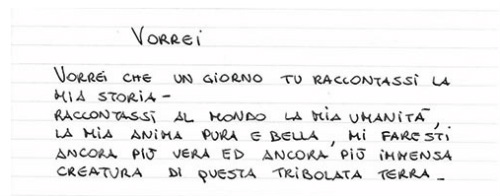 VORREI
VORREI CHE UN GIORNO TU RACCONTASSI LA
MIA STORIA-
RACCONTASSI AL MONDO LA MIA UMANITÀ,
LA MIA ANIMA PURA E BELLA, MI FARESTI
ANCORA PIÙ VERA ED ANCORA PIÙ IMMENSA
CREATURA DI QUESTA TRIBOLATA TERRA-